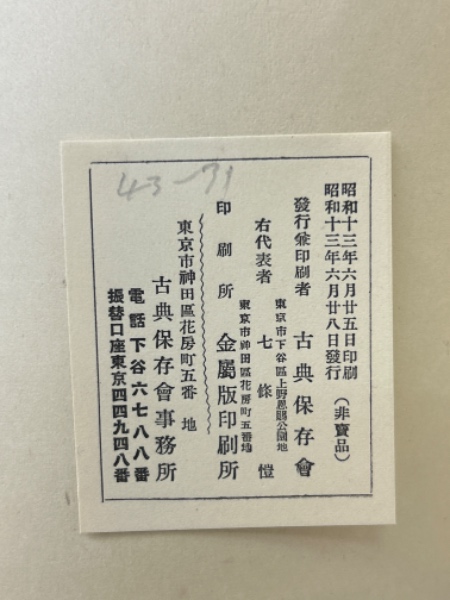 43-71
昭和十三年六月廿五日印刷
昭和十三年六月廿八日發行
(非賣品)
發行兼印刷者
東京市下谷區上野恩賜公園地
古典保存會
右代表者 七條愷
印刷所
東京市神田區花房町五番地
金屬版印刷所
東京市神田區花房町五番地
古典保存會事務所
電話下谷六七八八番
振替口座東京四四九四八番